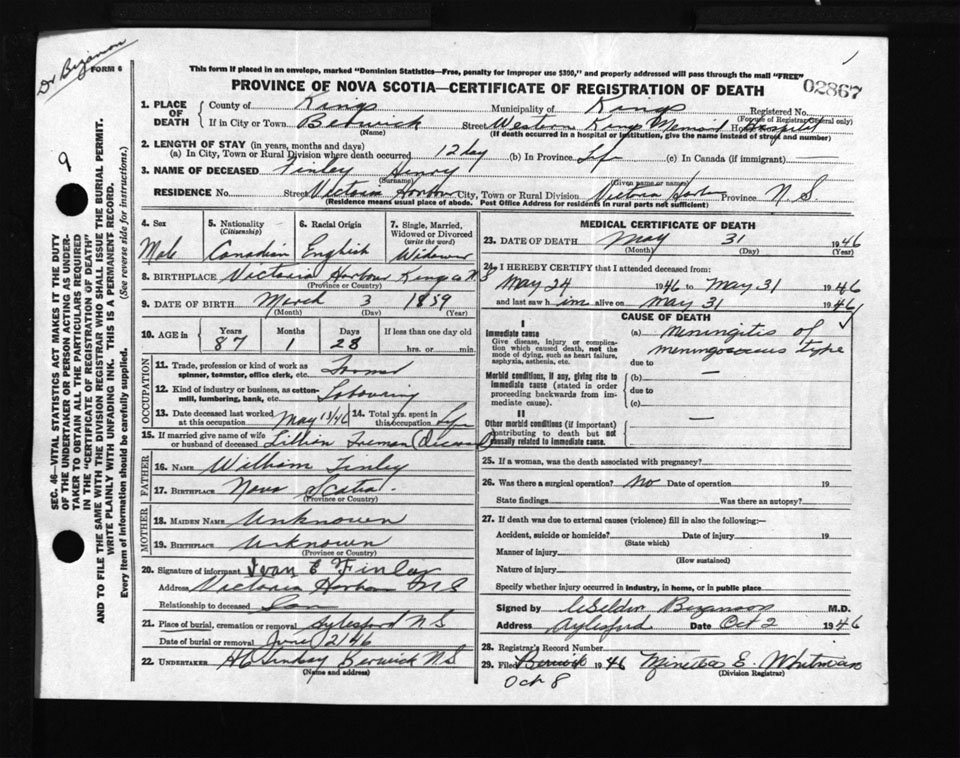 Dr Bezanson
FORM 6
This form if placed in an envelope, marked "Dominion Statistics—Free, penalty for improper use $300," and properly addressed will pass through the mail "FREE"
PROVINCE OF NOVA SCOTIA—CERTIFICATE OF REGISTRATION OF DEATH
02867
1. PLACE OF DEATH
County of Kings Municipality of Kings Registered No.
(For use of Registrar General only)
If in City or Town Berwick Street Western Kings Memorial Hospital
(Name) (If death occurred in a hospital or institution, give the name instead of street and number)
2. LENGTH OF STAY (in years, months and days)
(a) In City, Town or Rural Division where death occurred 12 day (b) In Province Life (c) In Canada (if immigrant) —
3. NAME OF DECEASED Finley Henry
(Surname) (Given name or names)
RESIDENCE No. Street Victoria Harbour City, Town or Rural Division Victoria Harbour Province N.S.
(Residence means usual place of abode. Post Office Address for residents in rural parts not sufficient)
4. Sex Male
5. Nationality (Citizenship) Canadian
6. Racial Origin English
7. Single, Married, Widowed or Divorced (write the word) Widower
8. BIRTHPLACE Victoria Harbour Kings Co N.S
(Province or Country)
9. DATE OF BIRTH March 3 1859
(Month) (Day) (Year)
10. AGE in Years Months Days If less than one day old
87 1 28 hrs. or min.
OCCUPATION
11. Trade, profession or kind of work as spinner, teamster, office clerk, etc.
12. Kind of industry or business, as cotton-mill, lumbering, bank, etc. Labouring
13. Date deceased last worked at this occupation May 13/46 14. Total yrs. spent in this occupation Life
15. If married give name of wife or husband of deceased Lillian (Deceased)
FATHER
16. NAME William Finley
17. BIRTHPLACE Nova Scotia.
(Province or Country)
MOTHER
18. MAIDEN NAME Unknown
19. BIRTHPLACE Unknown
(Province or Country)
20. Signature of informant Ivan E Finley
Address Victoria Harbour N S
Relationship to deceased Son
21. Place of burial, cremation or removal Aylesford N.S
Date of burial or removal June 2 1946
22. UNDERTAKER Lindsay Berwick N.S
(Name and address)
MEDICAL CERTIFICATE OF DEATH
23. DATE OF DEATH May 31 1946
(Month) (Day) (Year)
24. I HEREBY CERTIFY that I attended deceased from:
May 24 1946 to May 31 1946
and last saw him alive on May 31 1946
CAUSE OF DEATH
I
Immediate cause
Give disease, injury or complication which caused death, not the mode of dying, such as heart failure, asphyxia, asthenia, etc.
(a) Meningitis of meningococcus type
due to
Morbid conditions, if any, giving rise to immediate cause (stated in order proceeding backwards from immediate cause).
(b) —
due to
(c)
II
Other morbid conditions (if important) contributing to death but not causally related to immediate cause. —
25. If a woman, was the death associated with pregnancy?
26. Was there a surgical operation? No Date of operation 19
State findings Was there an autopsy?
27. If death was due to external causes (violence) fill in also the following:—
Accident, suicide or homicide? Date of injury 19
(State which)
Manner of injury
(How sustained)
Nature of injury
Specify whether injury occurred in industry, in home, or in public place
Signed by Bezanson M.D.
Address Aylesford Date Oct 2 1946
28. Registrar's Record Number
29. Filed Berwick 1946 Minetta E. Whitman
Oct 8 (Division Registrar)
9
SEC. 46—VITAL STATISTICS ACT MAKES IT THE DUTY
OF THE UNDERTAKER OR PERSON ACTING AS UNDER-
TAKER TO OBTAIN ALL THE PARTICULARS REQUIRED
IN THE "CERTIFICATE OF REGISTRATION OF DEATH"
AND TO FILE THE SAME WITH THE DIVISION REGISTRAR WHO SHALL ISSUE THE BURIAL PERMIT.
WRITE PLAINLY WITH UNFADING INK. THIS IS A PERMANENT RECORD.
Every item of information should be carefully supplied. (See reverse side for instructions.)